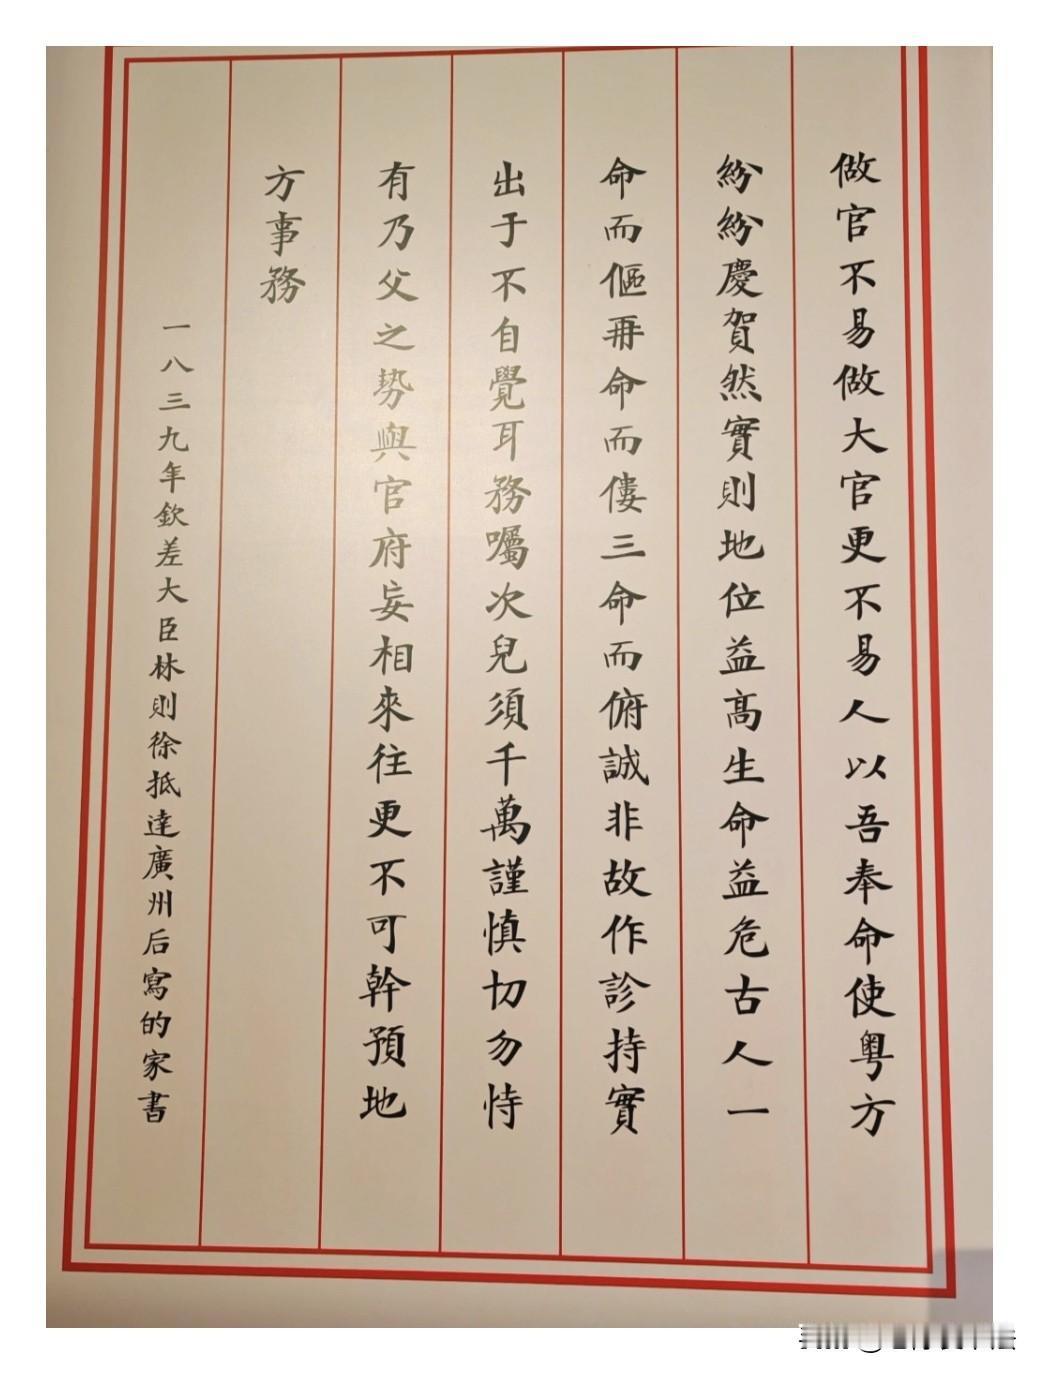 做官不易做大官更不易人以吾奉命使粤方
紛紛慶賀然實則地位益高生命益危古人一
命而傴再命而僂三命而俯誠非故作診持實
出于不自覺耳務囑次兒須千萬謹慎切勿恃
有乃父之勢與官府妄相來往更不可幹預地
方事務
一八三九年欽差大臣林則徐抵達廣州后寫的家書